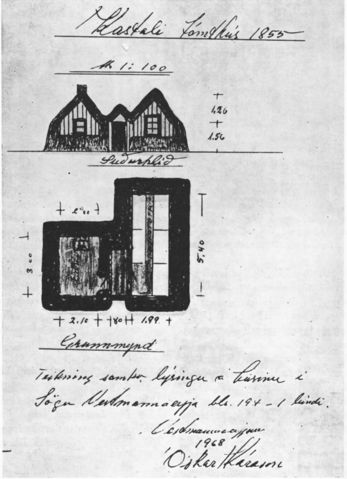 Kastali tómthús 1855
M 1:100
1.20
1.56
Suðurhlið
2.00
3.00
5.40
2.10 80 1.99
Grunnmynd
Teikning samkv. lýsingu á húsinu í
Sögu Vestmannaeyja bls. 194 - 1 bindi.
Vestmannaeyjum
1968
Óskar Kárason